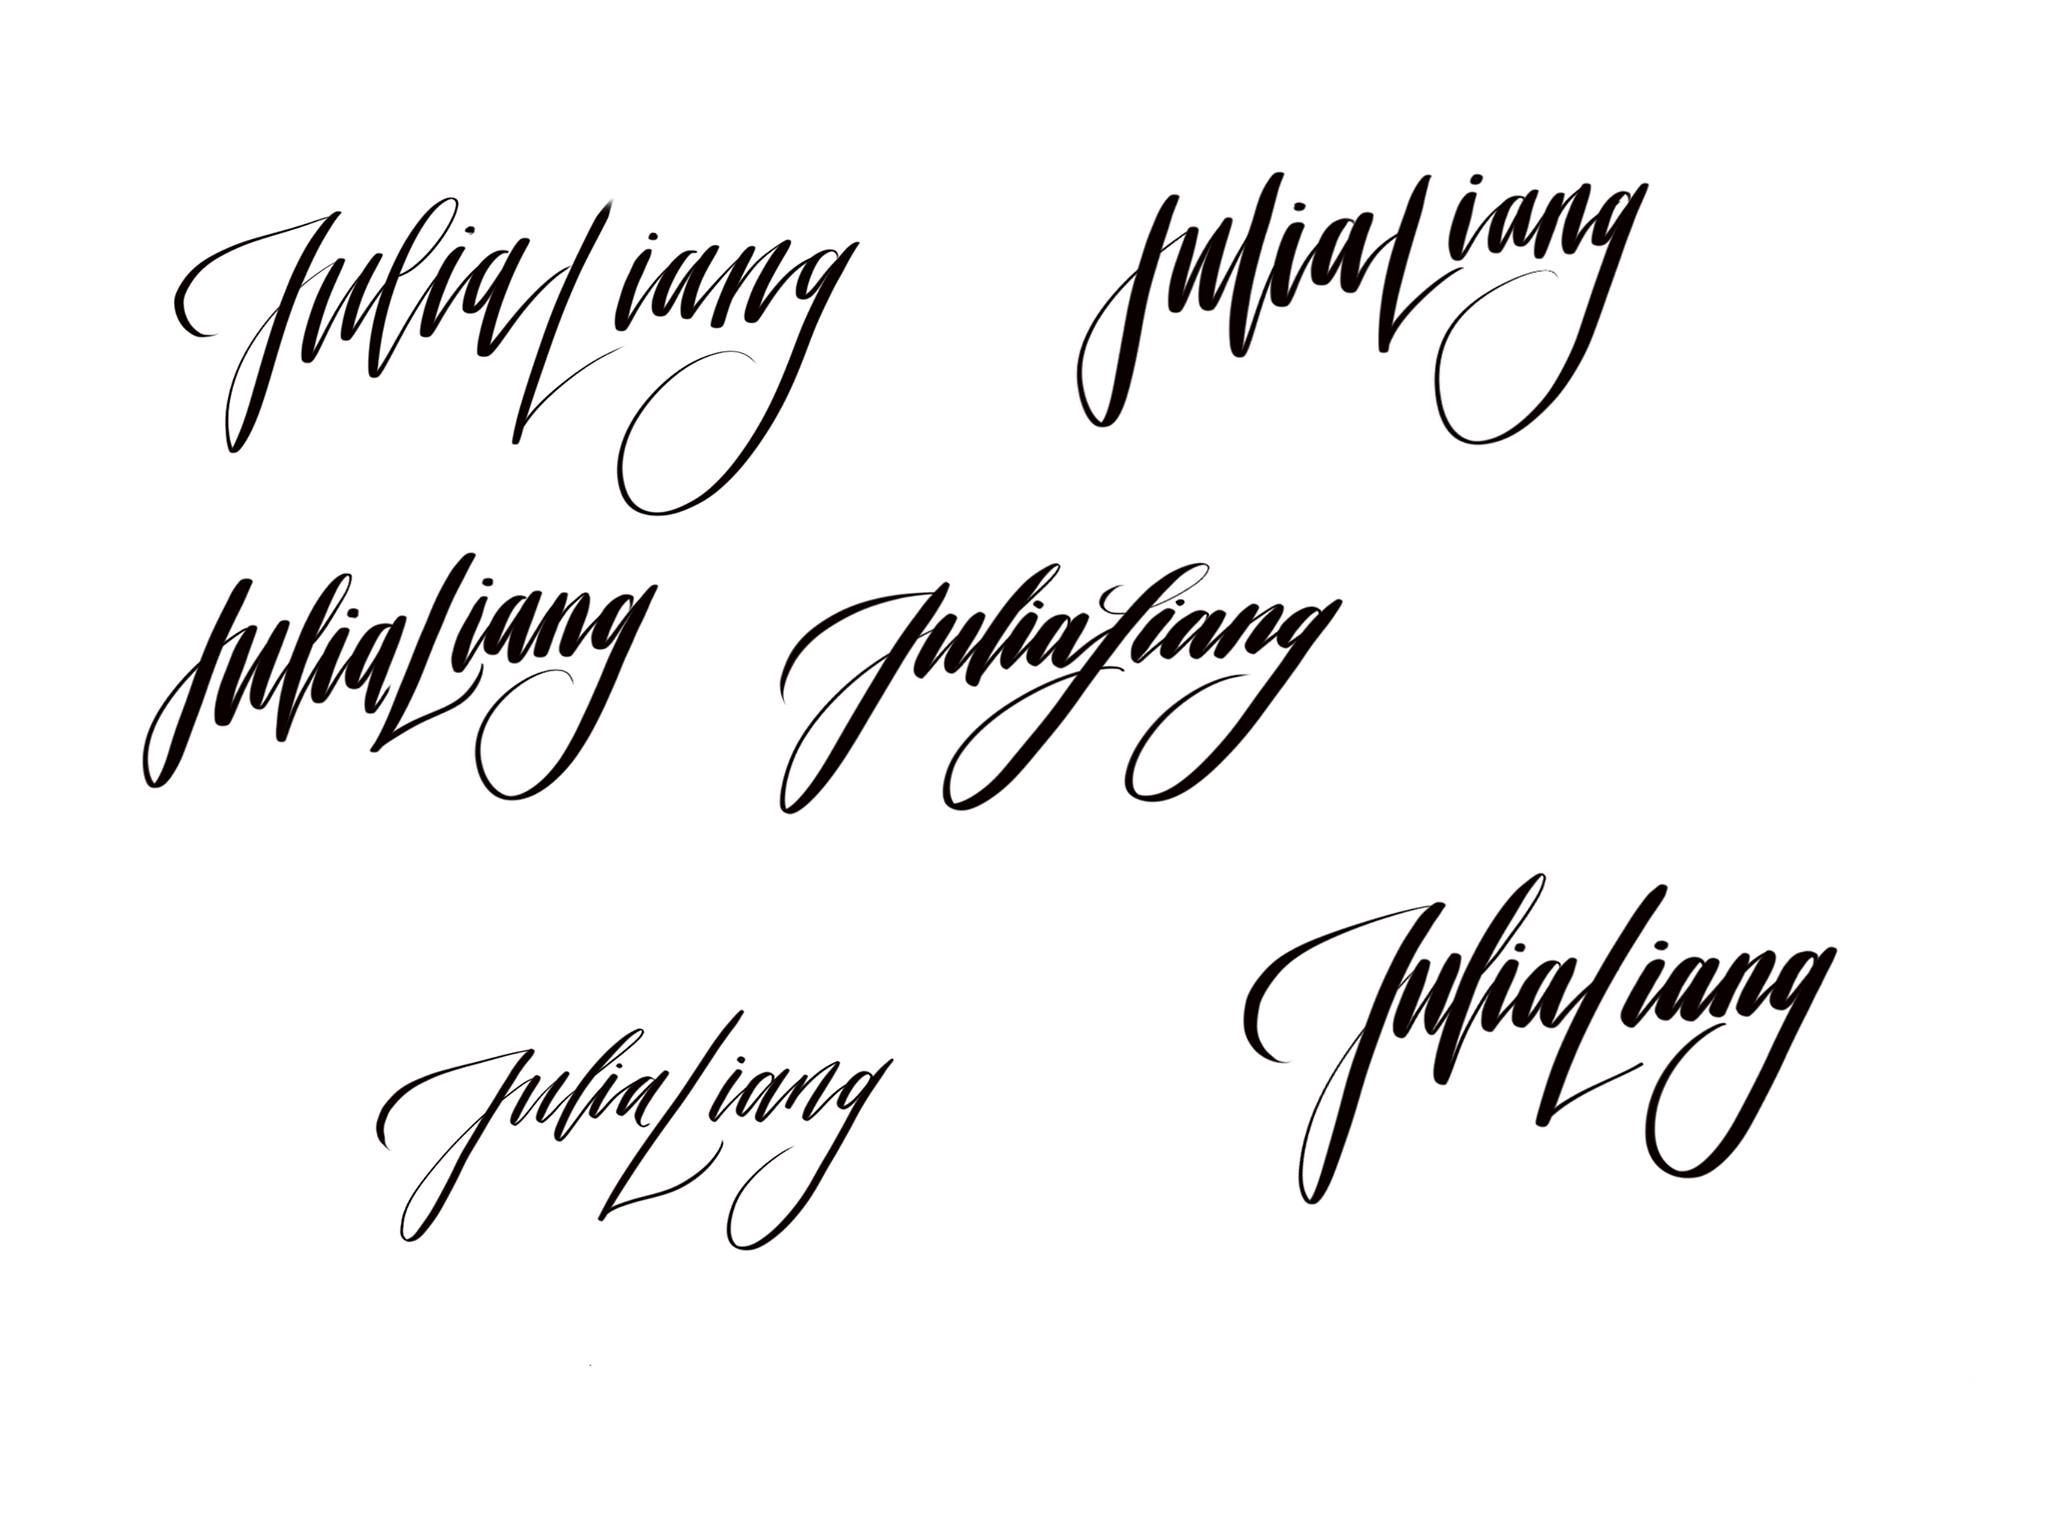 Julia Liang
Julia Liang
Julia Liang
Julia Liang
Julia Liang
Julia Liang